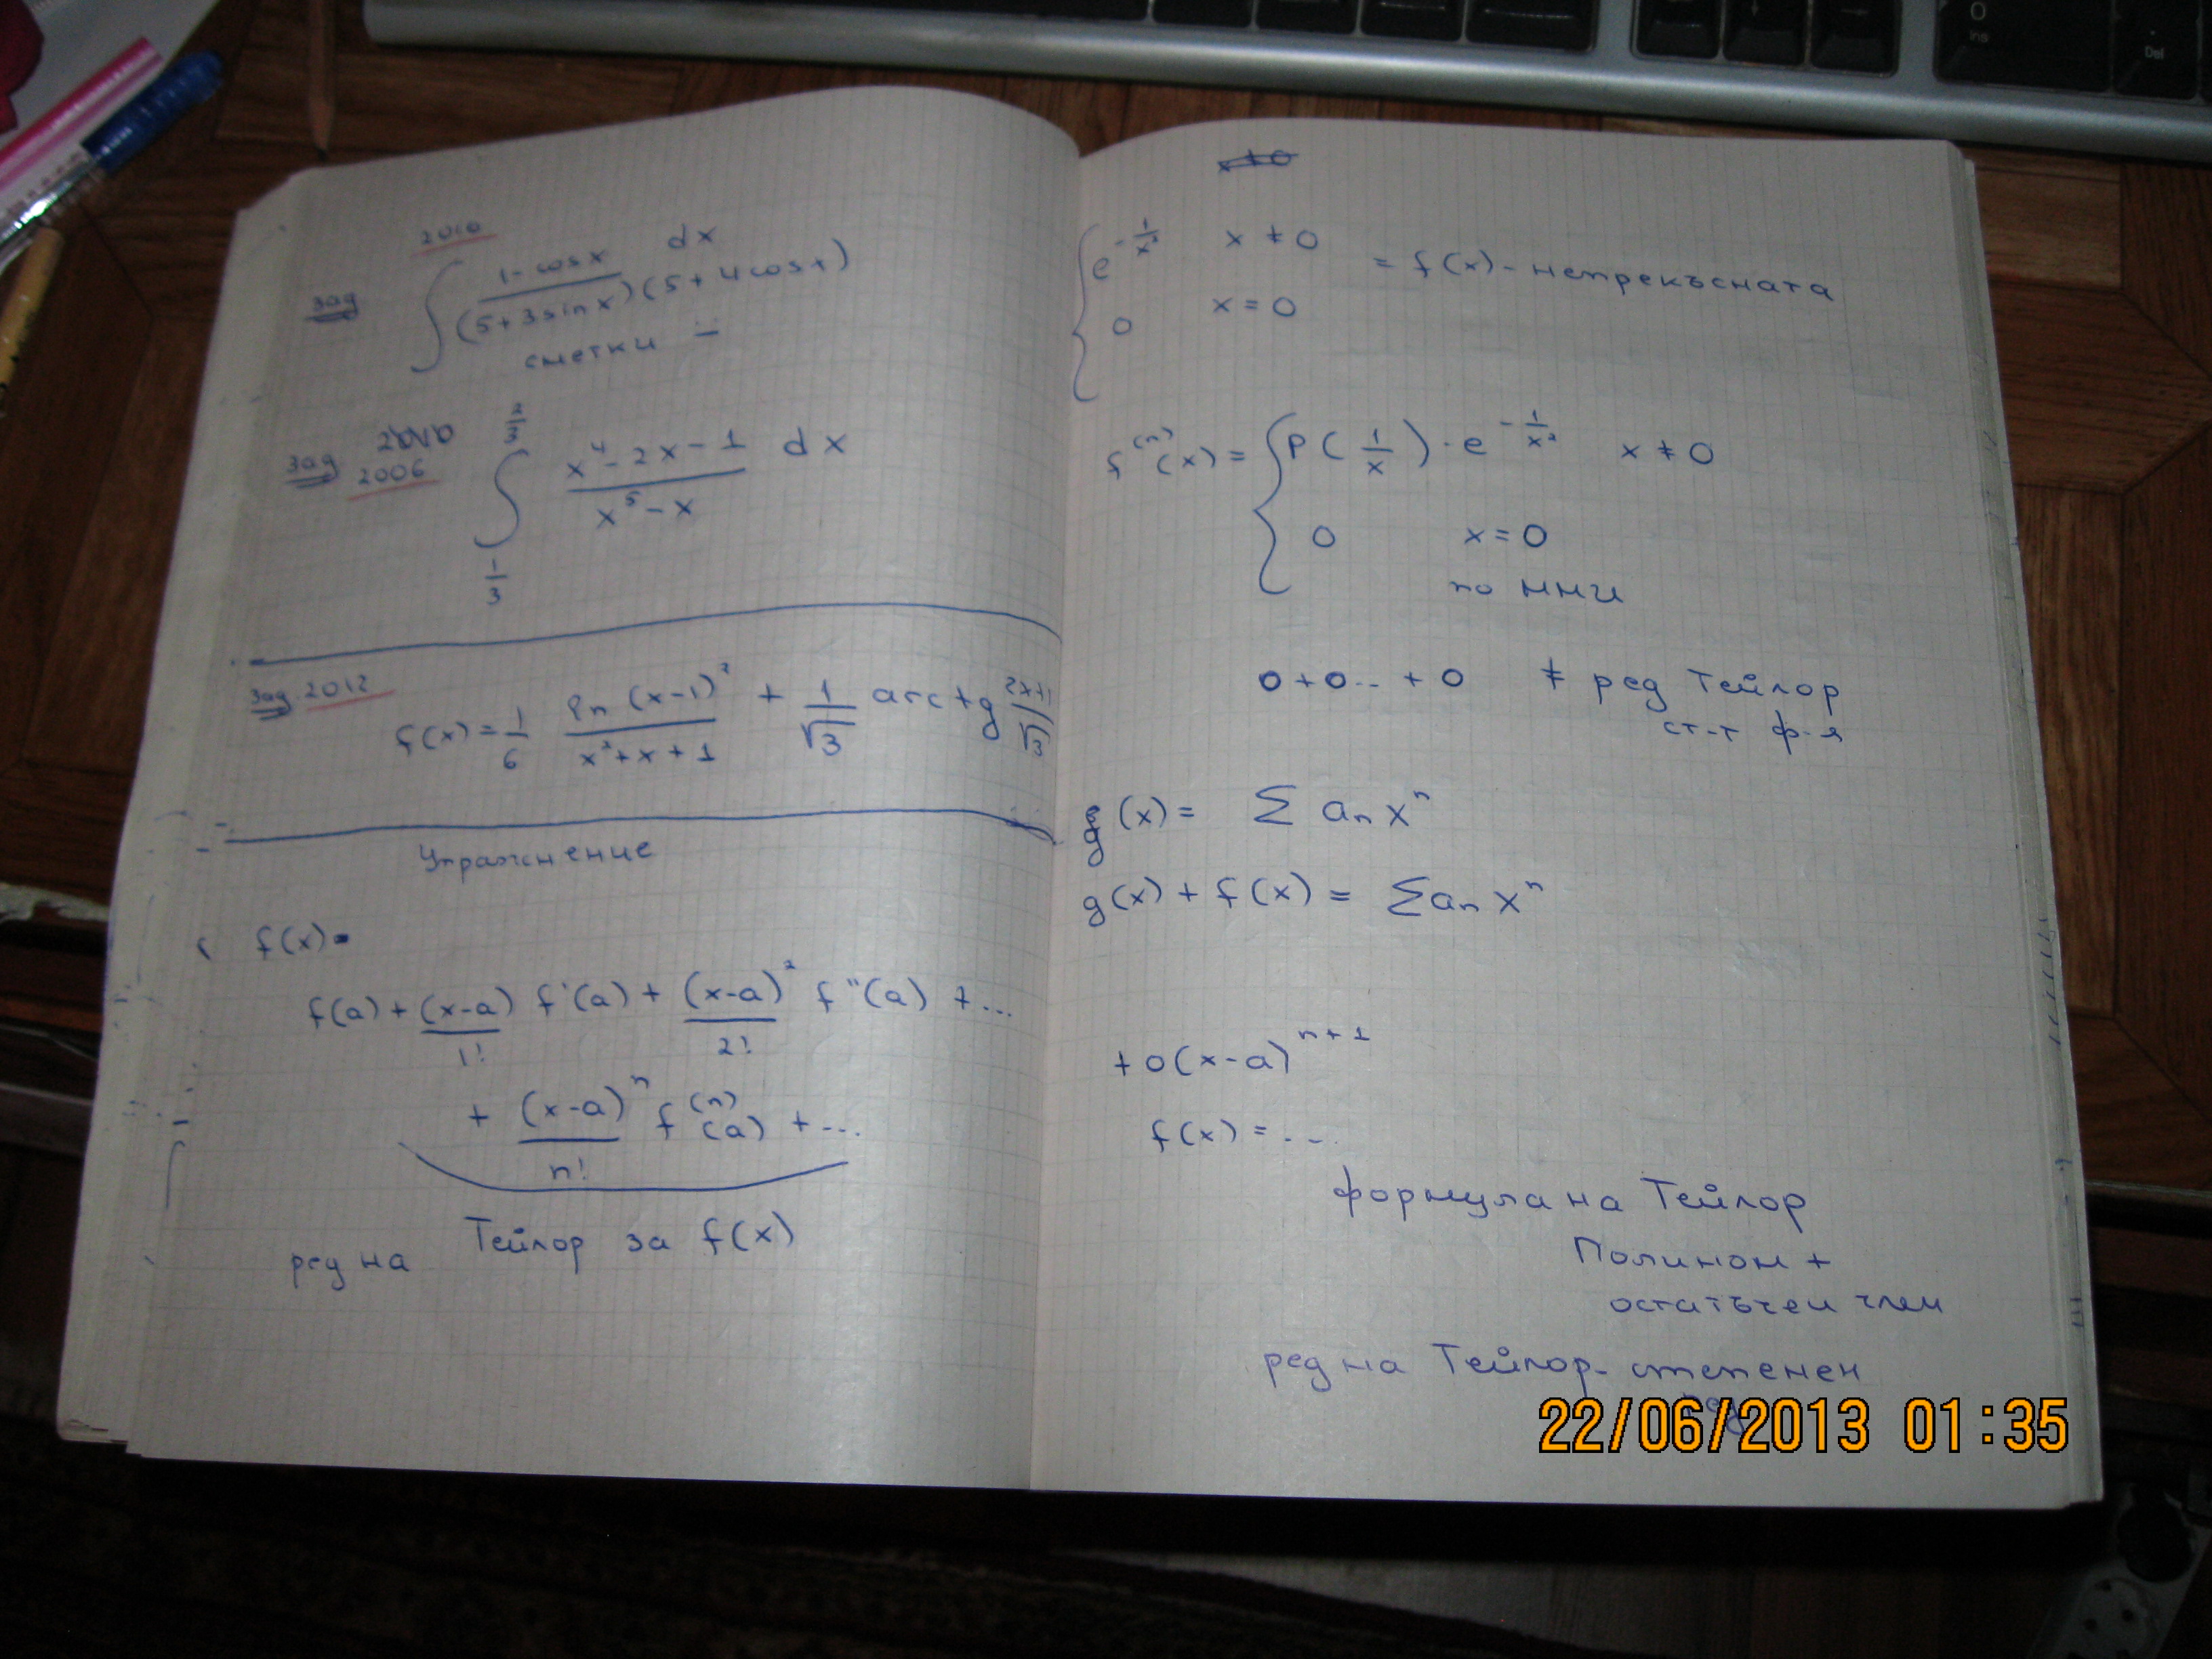 2010
зад ∫ (1 - cos x)/((5 + 3 sin x)(5 + 4 cos x)) dx
сметки -
зад 2010
2006 ∫_{-1/3}^{2/3} (x^4 - 2x - 1)/(x^5 - x) dx
зад 2012
f(x) = 1/6 ln (x-1)^2/(x^2 + x + 1) + 1/√3 arctg (2x+1)/√3
Упражнение
f(x) =
f(a) + (x-a)/1! f'(a) + (x-a)^2/2! f''(a) + ...
+ (x-a)^n/n! f^(n)(a) + ...
ред на Тейлор за f(x)
x ≠ 0
{ e^{-1/x^2} x ≠ 0
0 x = 0 = f(x) - непрекъсната
f^(n)(x) = { P(1/x) · e^{-1/x^2} x ≠ 0
0 x = 0
по мми
0 + 0 .. + 0 ≠ ред Тейлор
ст-т ф-я
g(x) = Σ a_n x^n
g(x) + f(x) = Σ a_n x^n
+ o(x-a)^{n+1}
f(x) = ...
формула на Тейлор
Полином +
остатъчен член
ред на Тейлор - степенен
ред
22/06/2013 01:35
Ins
Del